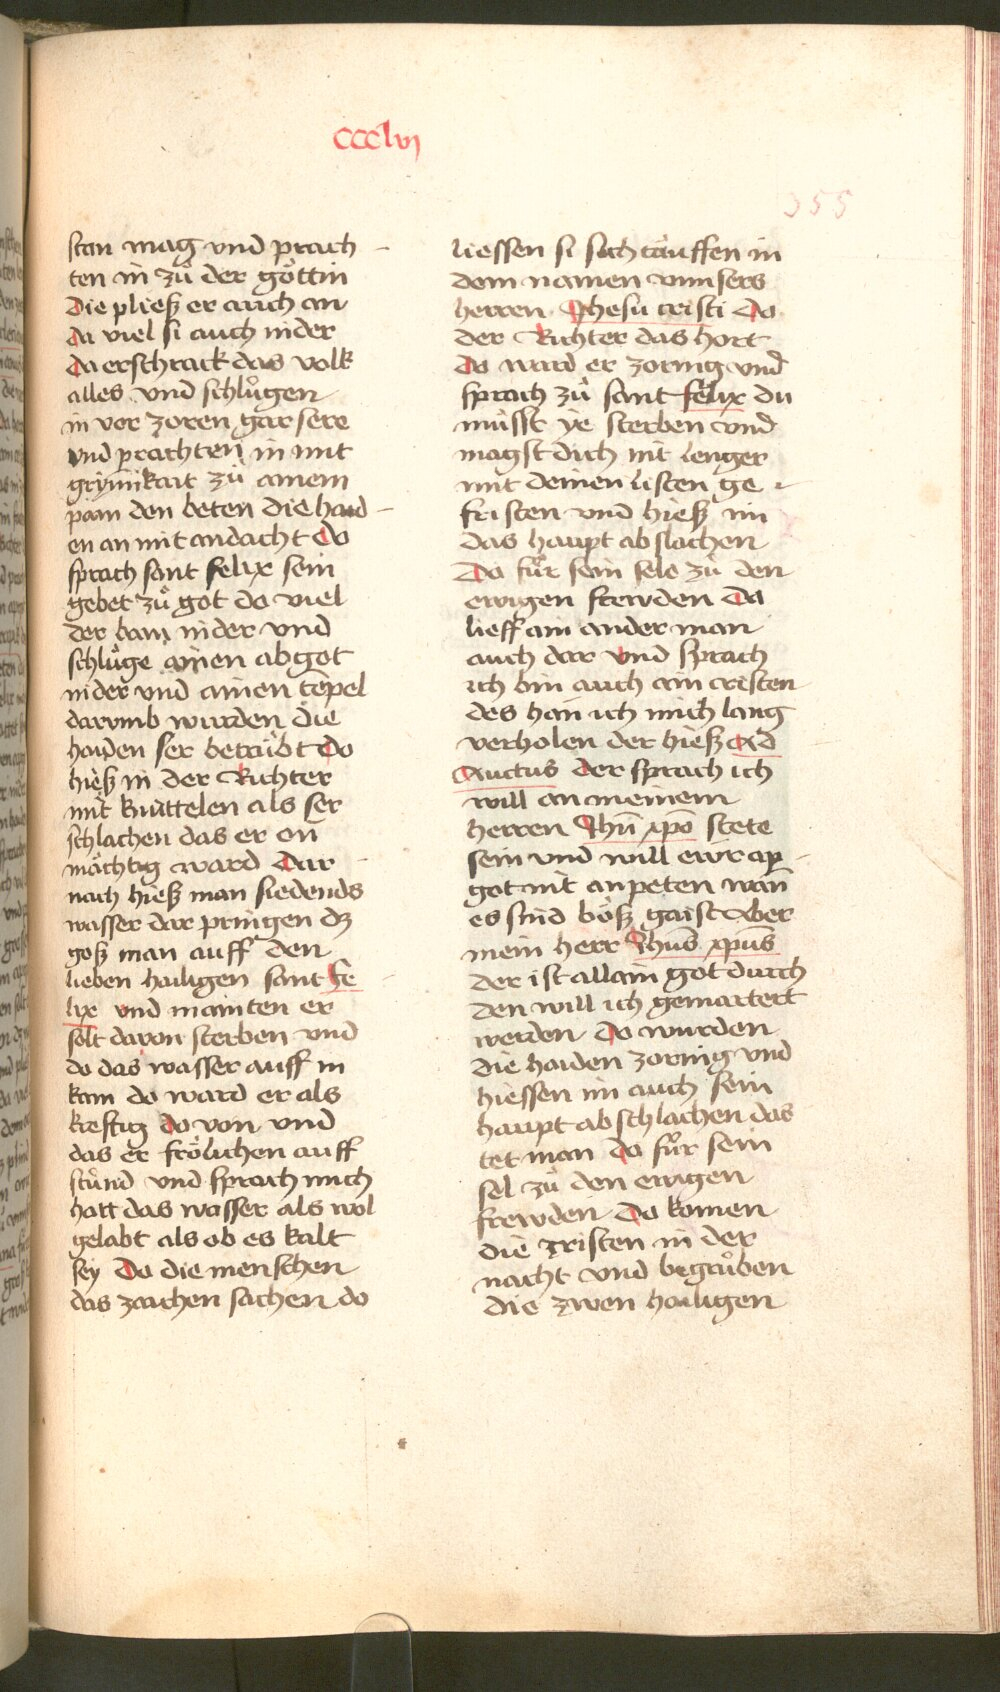 ccclvj
355
stan mag vnd prach
ten in zuͦ der göttin
Die pließ er auch an
da viel si auch nider
Da erschrack das volk
alles vnd schluͦgen
in vor zoren gar sere
vnd prachten in mit
grymikait zuͦ ainem
pam den beten die haid
en an mit andacht Do
sprach sant felix sein
gebet zuͦ got do viel
der bam nider vnd
schluͦge ainen abgot
nider vnd ainen tēpel
darvmb wurden die
haiden ser betruͤbt Do
hieß in der Richter
mit knuttelen als ser
schlachen das er on
mächtig ward Dar
nach hieß man siedends
wasser dar pringen dz
goß man auff den
lieben hailigen sant fe
lix vnd mainten er
solt davon sterben vnd
do das wasser auff in
kam do ward er als
kreftig do von vnd
das er frölichen auff
stuͦnd vnd sprach mich
hatt das wasser als wol
gelabt als ob es kalt
sey Do die menschen
das zaichen sachen do
liessen si sich tauffen in
dem namen vnnsers
herren Jhesu cristi Do
der Richter das hort
do ward er zornig vnd
sprach zuͦ sant felix du
muͤsst ye sterben vnd
magst dich nit lenger
mit deinen listen ge
fristen vnd hieß im
das haupt ab slachen
Da fuͦr sein sele zuͦ den
ewigen frewden Da
lieff ain ander man
auch dar vnd sprach
ich bin auch ain cristen
des han ich mich lang
verholen der hieß Ad
Auctus der sprach ich
will an meinem
herren Jhū xpō stete
sein vnd will ewr ap
got nit an peten wan̄
es sind böß gaist Aber
mein herr Jhūs xpūs
der ist allain got durch
den will ich gemartert
werden Do wurden
die haiden zornig vnd
hiessen im auch sein
haupt ab schlachen das
tet man da fuͦr sein
sel zuͦ den ewigen
frewden Da komen
die Cristen in der
nacht vnd begruͦben
die zwen hailigen